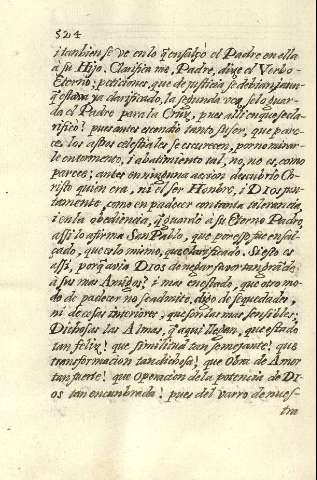 524
i tanbien se ve en lo q̃ ensalçó el Padre en ella
á su Hijo. Clarifica me, Padre, dixo el Verbo
Eterno; peticiones, que de justicia se debian, i aun
q̃ estava ya clarificado, la segunda vez se lo guar-
da el Padre para la Cruz, pues alli en que se cla-
rificó? pues antes escondio tanto su ser, que pare-
ce, los astros celestiales se escurecen, por no mirar-
le en tormento, i abatimiento tal, no, no es, como
parece; antes en ninguna accion descubrio Ch-
risto quien era, ni el ser Hombre, i DIOS jun-
tamente, como en padecer con tanta tolerancia,
i en la obediencia, q̃ guardó à su Eterno Padre,
assi lo afirma San Pablo, que por esso fue ensal-
çado, que es lo mismo, que clarificado. Si esto es
assi, porq̃ avia DIOS de negar favor tan grande
à sus mas Amigos? i mas en estado, que otro mo-
do de padecer no se admite, digo de sequedades,
ni de cosas interiores, que son las mas sensibles.
Dichosas las Almas, q̃ aqui llegan, que estado
tan feliz! que similitud tan semejante! que
transformacion tan dichosa! que Obra de Amor
tan fuerte! que Operacion de la potencia de DI-
OS tan encumbrada! pues del varro de nues-
tra